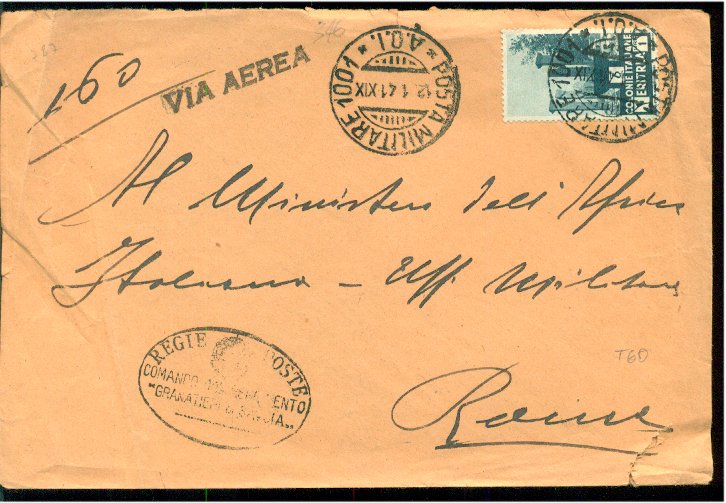 160
VIA AEREA
POSTA MILITARE 1001
* A.O.I. *
12.1.41 XIX
POSTA MILITARE 1001
* A.O.I. *
COLONIE ITALIANE
ERITREA
Al Ministero dell'Africa
Italiana - Uff. Militare
Roma
REGIE POSTE
COMANDO REGGIMENTO
"GRANATIERI DI SAVOIA"
T60